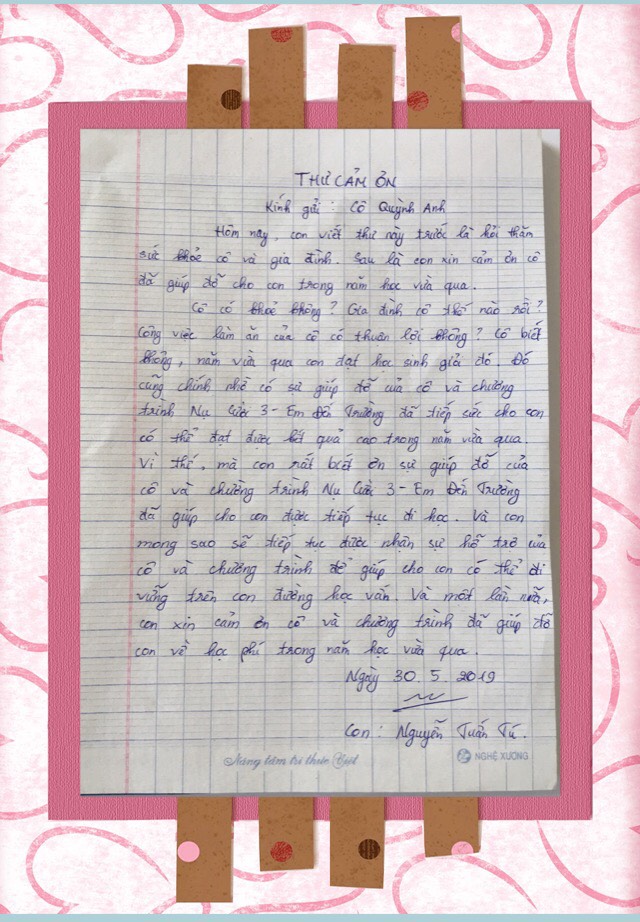 THƯ CẢM ƠN
Kính gửi : Cô Quỳnh Anh
Hôm nay, con viết thư này trước là hỏi thăm
sức khoẻ cô và gia đình. Sau là con xin cảm ơn cô
đã giúp đỡ cho con trong năm học vừa qua.
Cô có khoẻ không? Gia đình cô thế nào rồi?
Công việc làm ăn của cô có thuận lợi không? Cô biết
không, năm vừa qua con đạt học sinh giỏi đó. Đó
cũng chính nhờ có sự giúp đỡ của cô và chương
trình Nụ Cười 3 - Em Đến Trường đã tiếp sức cho con
có thể đạt được kết quả cao trong năm vừa qua
Vì thế, mà con rất biết ơn sự giúp đỡ của
cô và chương trình Nụ Cười 3 - Em Đến Trường
đã giúp cho con được tiếp tục đi học. Và con
mong sao sẽ tiếp tục được nhận sự hỗ trợ của
cô và chương trình để giúp cho con có thể đi
vững trên con đường học vấn. Và một lần nữa,
con xin cảm ơn cô và chương trình đã giúp đỡ
con về học phí trong năm học vừa qua.
Ngày 30. 5. 2019
Con : Nguyễn Tuấn Tú.
Nâng tầm tri thức Việt
NGHỆ XƯƠNG